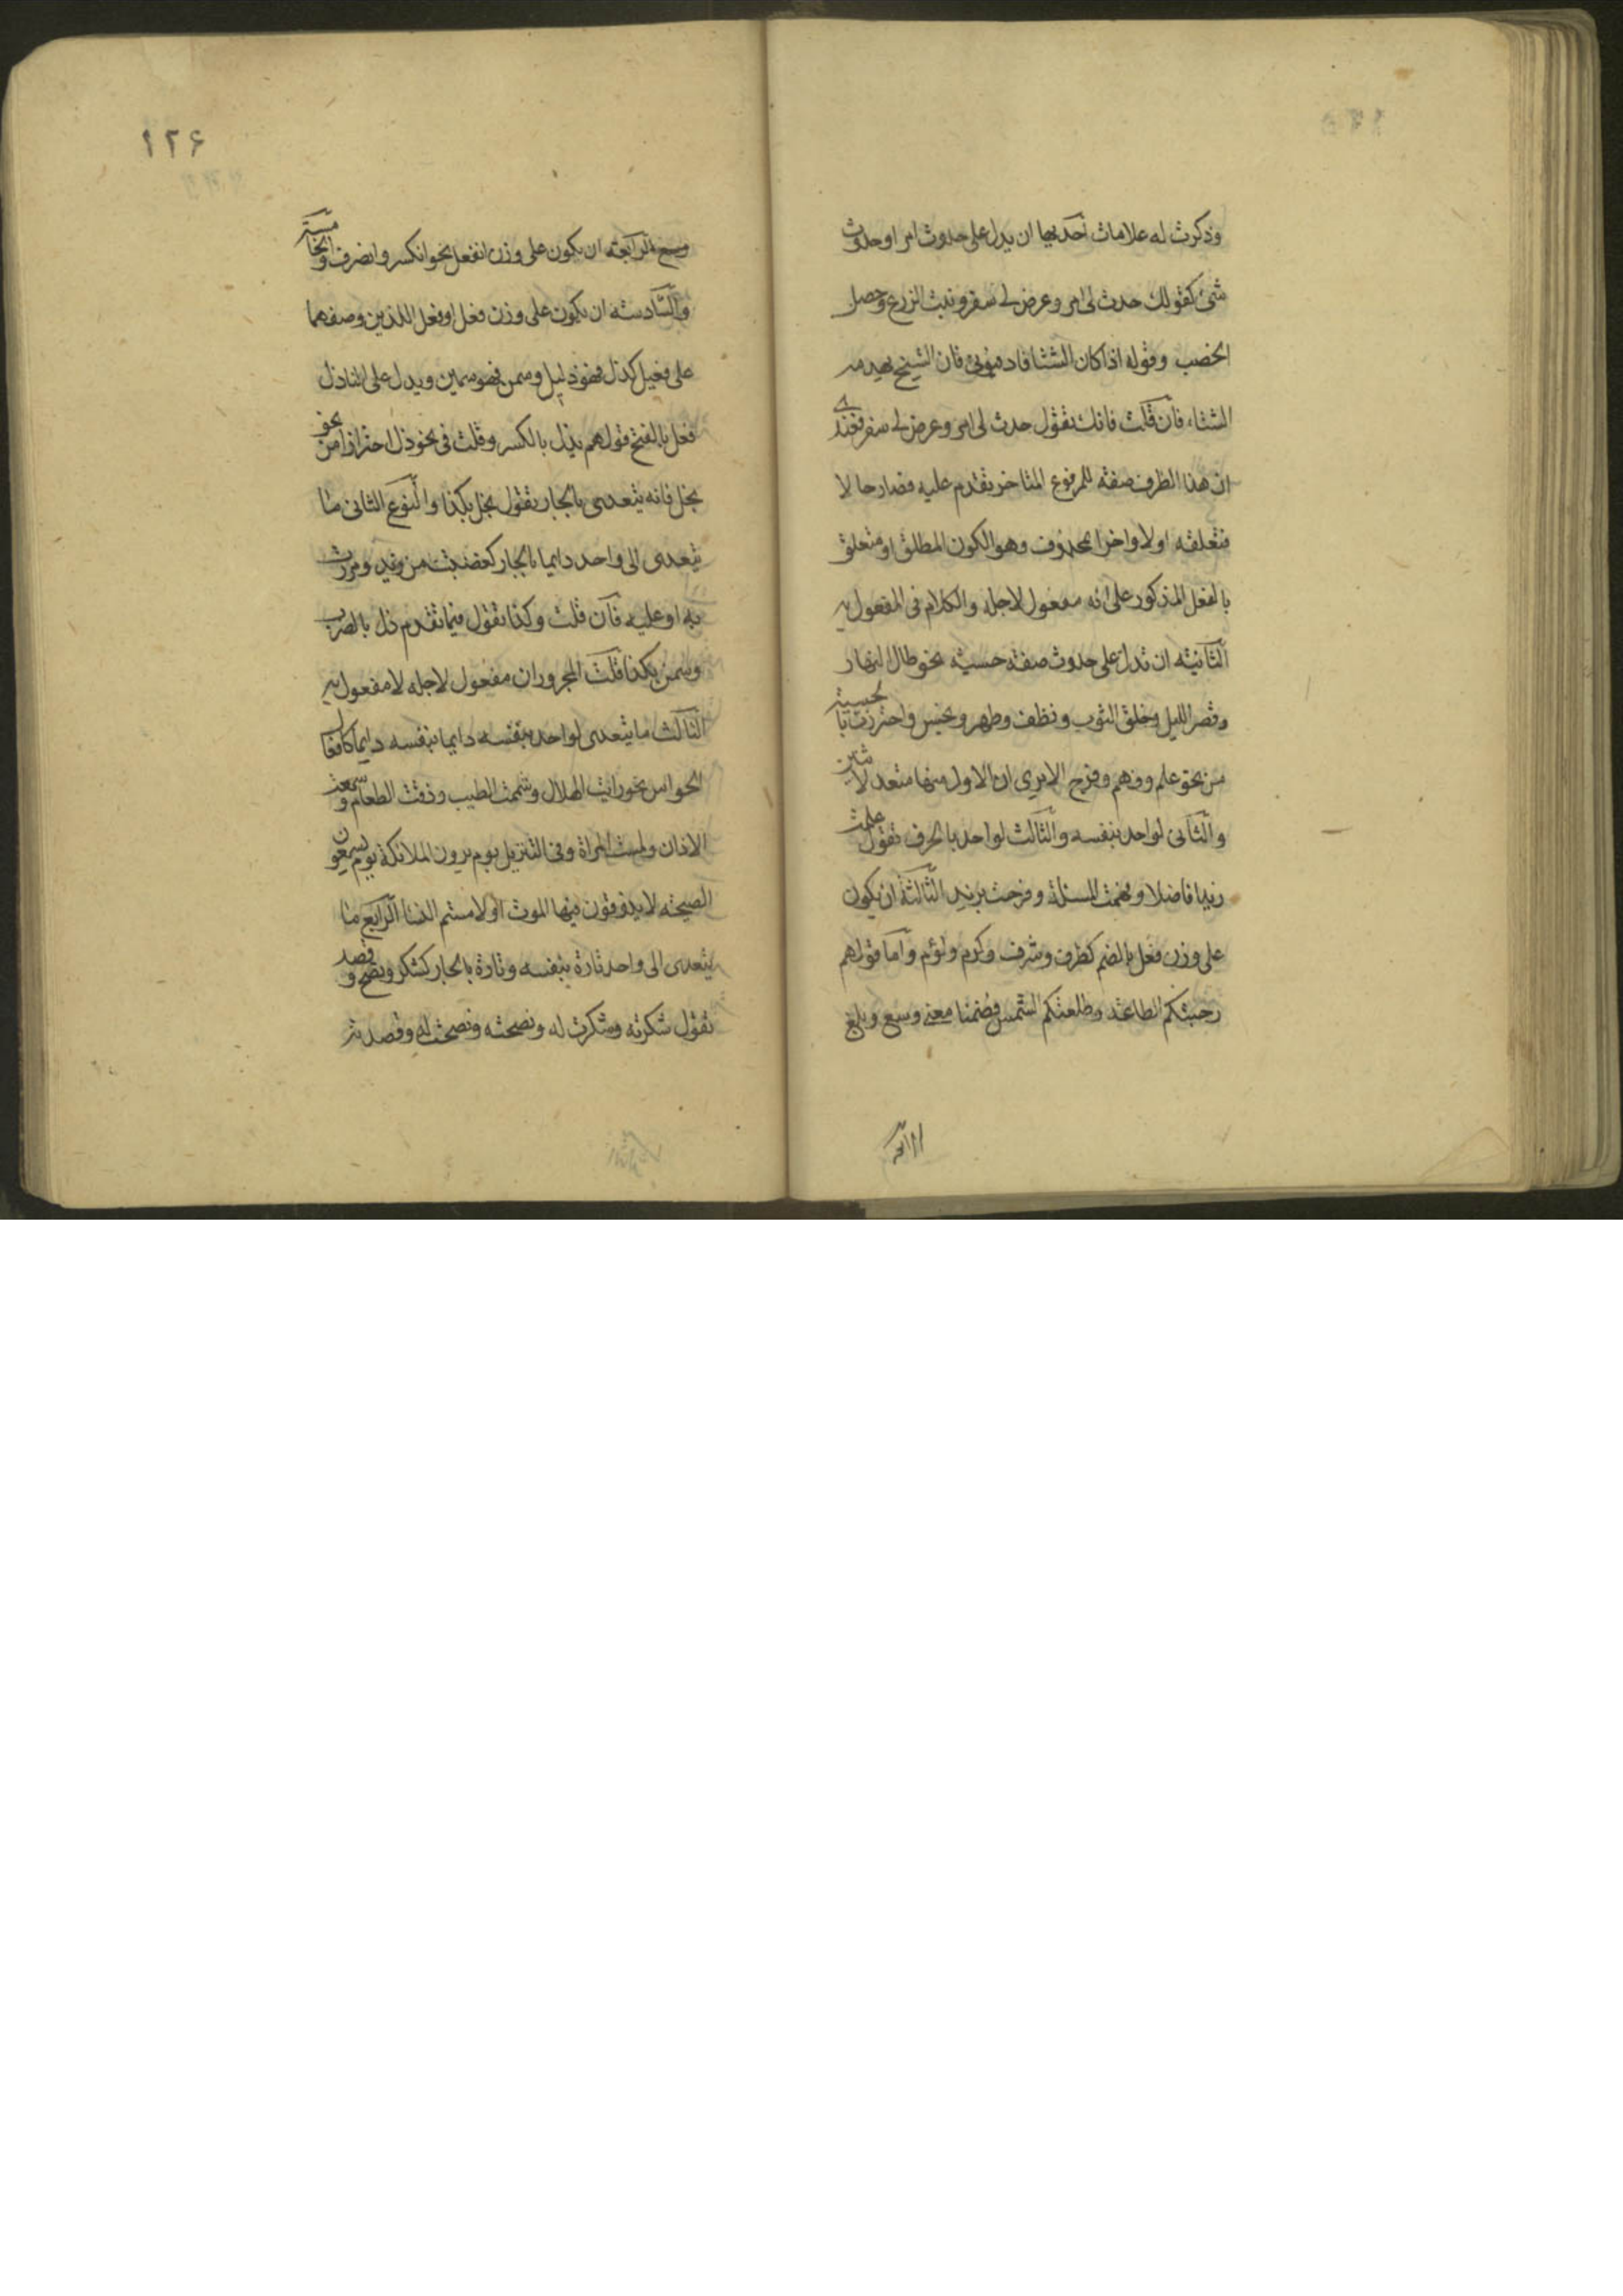 وذكرت له علامات احديها ان يدل على حدوث امر او حدوث
شئ كقولك حدث لى امر وعرض لى سفر ونبت الزرع وحصل
الخصب وقوله اذا كان الشتا فادفئونى فان الشيخ يهدمه
الشتاء فان قلت فانك تقول حدث لى امر وعرض لى سفر فعندى
ان هذا الظرف صفة للمرفوع المتاخر تقدم عليه فصار حالا
فتعلقه اولا واخرا بمحذوف وهو الكون المطلق او متعلق
بالفعل المذكور على انه مفعول لاجله والكلام فى المفعول به
الثانية ان تدل على حدوث صفة حسية نحو طال النهار
وقصر الليل وخلق الثوب ونظف وطهر ونجس واحترزت بالحسية
من نحو علم وفهم وفرح الا يرى ان الاول منها متعد لاثنين
والثانى لواحد بنفسه والثالث لواحد بالحرف تقول علمت
زيدا فاضلا وفهمت المسئلة وفرحت بزيد الثالثة ان يكون
على وزن فعل بالضم كظرف وشرف وكرم ولؤم واما قولهم
رحبتكم الطاعة وطلعتكم الشمس فضمنا معنى وسع وبلغ
الرابعة
١٢۶
وسع الرابعة ان يكون على وزن انفعل نحو انكسر وانصرف
والسادسة ان يكون على وزن فعل او فعل اللذين وصفهما
على فعيل كذل فهو ذليل وسمن فهو سمين ويدل على ان ذل
فعل بالفتح قولهم يذل بالكسر وقلت فى نحو ذل احترازا من نحو
بخل فانه يتعدى بالجار تقول بخل بكذا والنوع الثانى ما
يتعدى الى واحد دايما بالجار كغضبت من زيد ومررت
به او عليه فان قلت وكذا تقول فيما تقدم ذل بالضرب
وسمن بكذا قلت المجروران مفعول لاجله لا مفعول به
الثالث ما يتعدى لواحد بنفسه دايما بنفسه دايما كافعال
الحواس نحو رايت الهلال وشممت الطيب وذقت الطعام وسمعت
الاذان ولمست المراة وفى التنزيل يوم يرون الملائكة يوم يسمعون
الصيحة لا يذوقون فيها الموت او لامستم النسا الرابع ما
يتعدى الى واحد تارة بنفسه وتارة بالجار كشكر ونصح وقصد
تقول شكرته وشكرت له ونصحته ونصحت له وقصدته